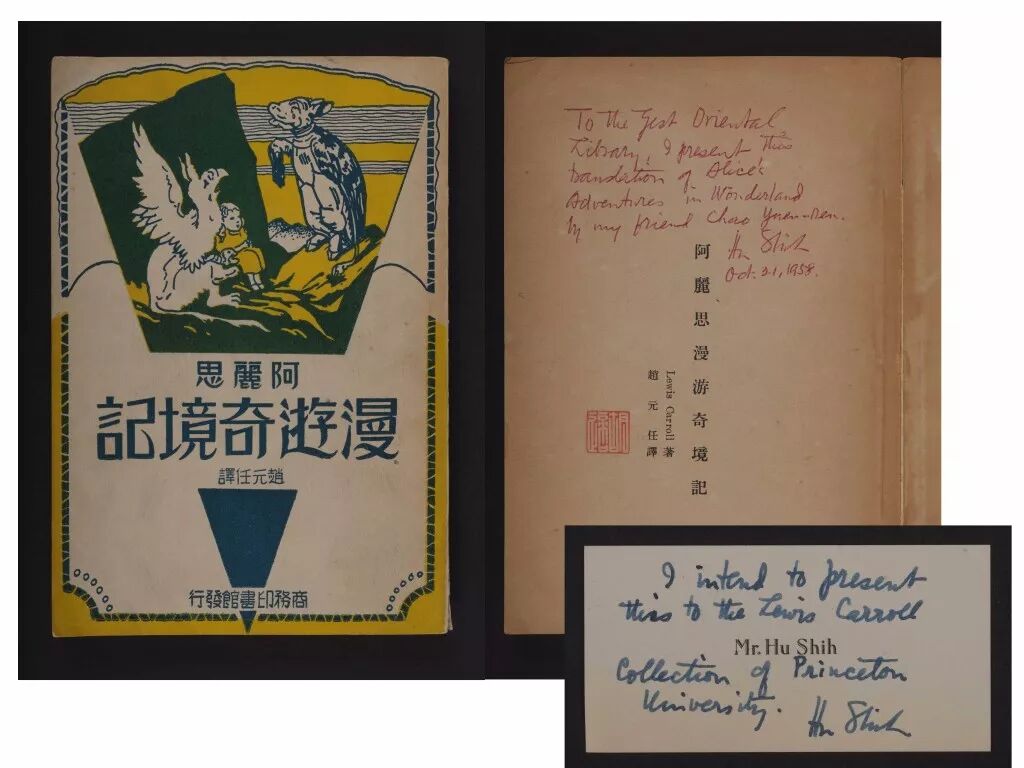 阿麗思
漫遊奇境記
趙元任譯
商務印書館發行
To the Gest Oriental
Library, I present this
translation of Alice's
Adventures in Wonderland
by my friend Chao Yuen-ren.
Hu Shih
Oct. 21, 1958.
阿麗思漫游奇境記
Lewis Carroll 著
趙元任譯
I intend to present
this to the Lewis Carroll
Mr. Hu Shih
Collection of Princeton
University.
Hu Shih